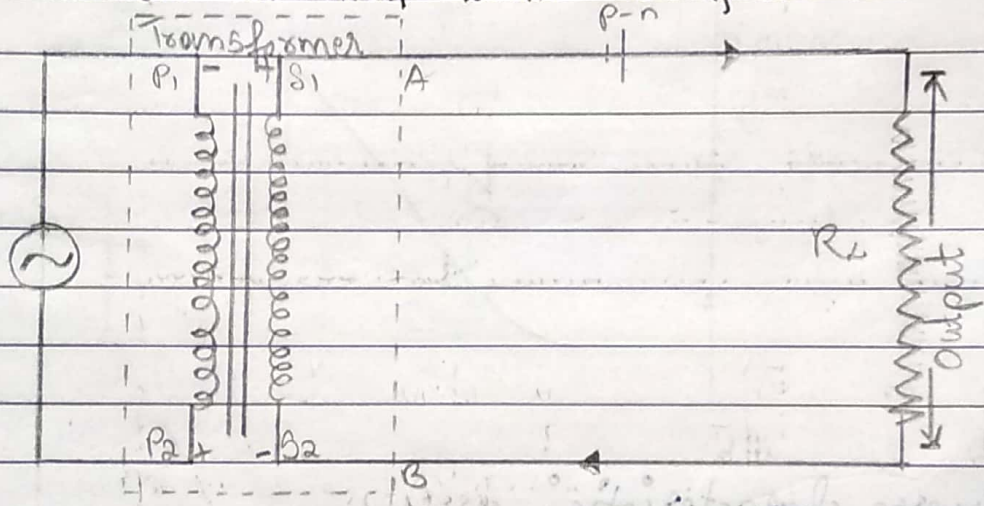 p-n
Transformer
P1 - + S1 A
RL
Output
P2 + - S2
B